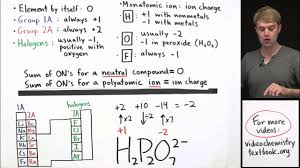 • Element by itself: 0
• Group 1A: always +1
• Group 2A: always +2
• Halogens: usually -1
positive with oxygen
• Monatomic ion: ion charge
• H +1 with nonmetals
-1 with metals
• O usually -2
-1 in peroxide (H₂O₂)
• F always -1
Sum of ON's for a neutral compound = 0
Sum of ON's for a polyatomic ion = ion charge
1A
2A
halogens
+2 +10 -14 = -2
+1 -2
H₂P₂O₇²⁻
For more
videos:
videochemistry
textbook.org